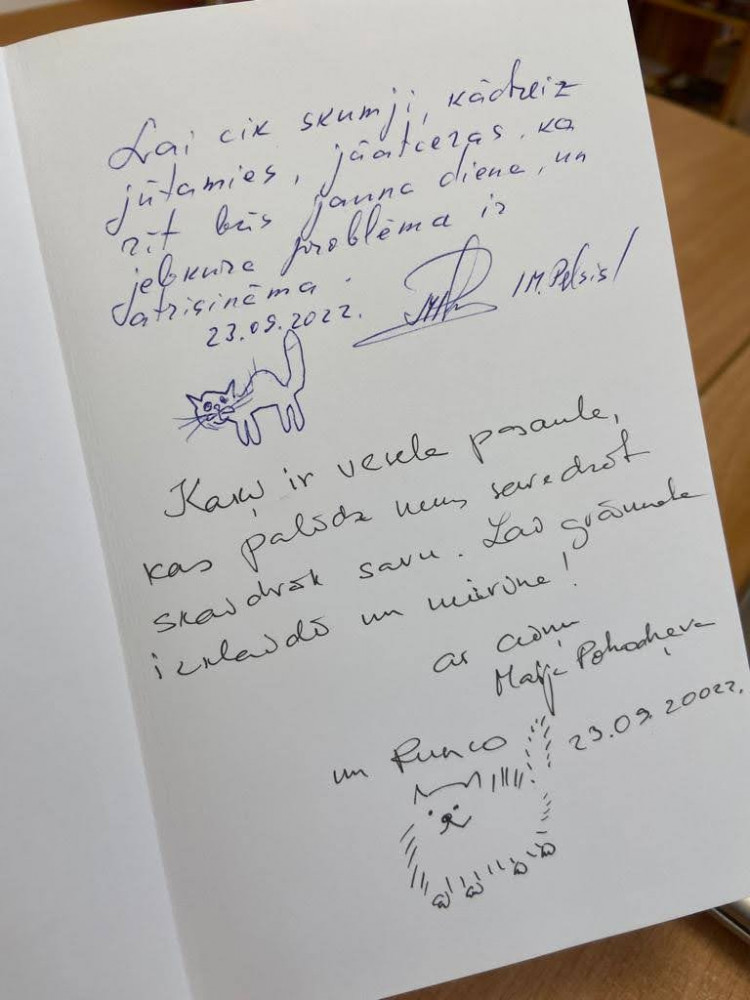 Lai cik skumji, kādreiz
jūtamies, jāatceras, ka
rīt būs jauna diena, un
jebkura problēma ir
atrisināma.
23.09.2022.
/M.Pelsis/
Kaķi ir vesela pasaule,
kas palīdz mums saredzēt
skaidrāk savu. Lai grāmata
izklaidē un mierina!
ar cieņu
Maija Pohodņeva
un Runco
23.09.20022.